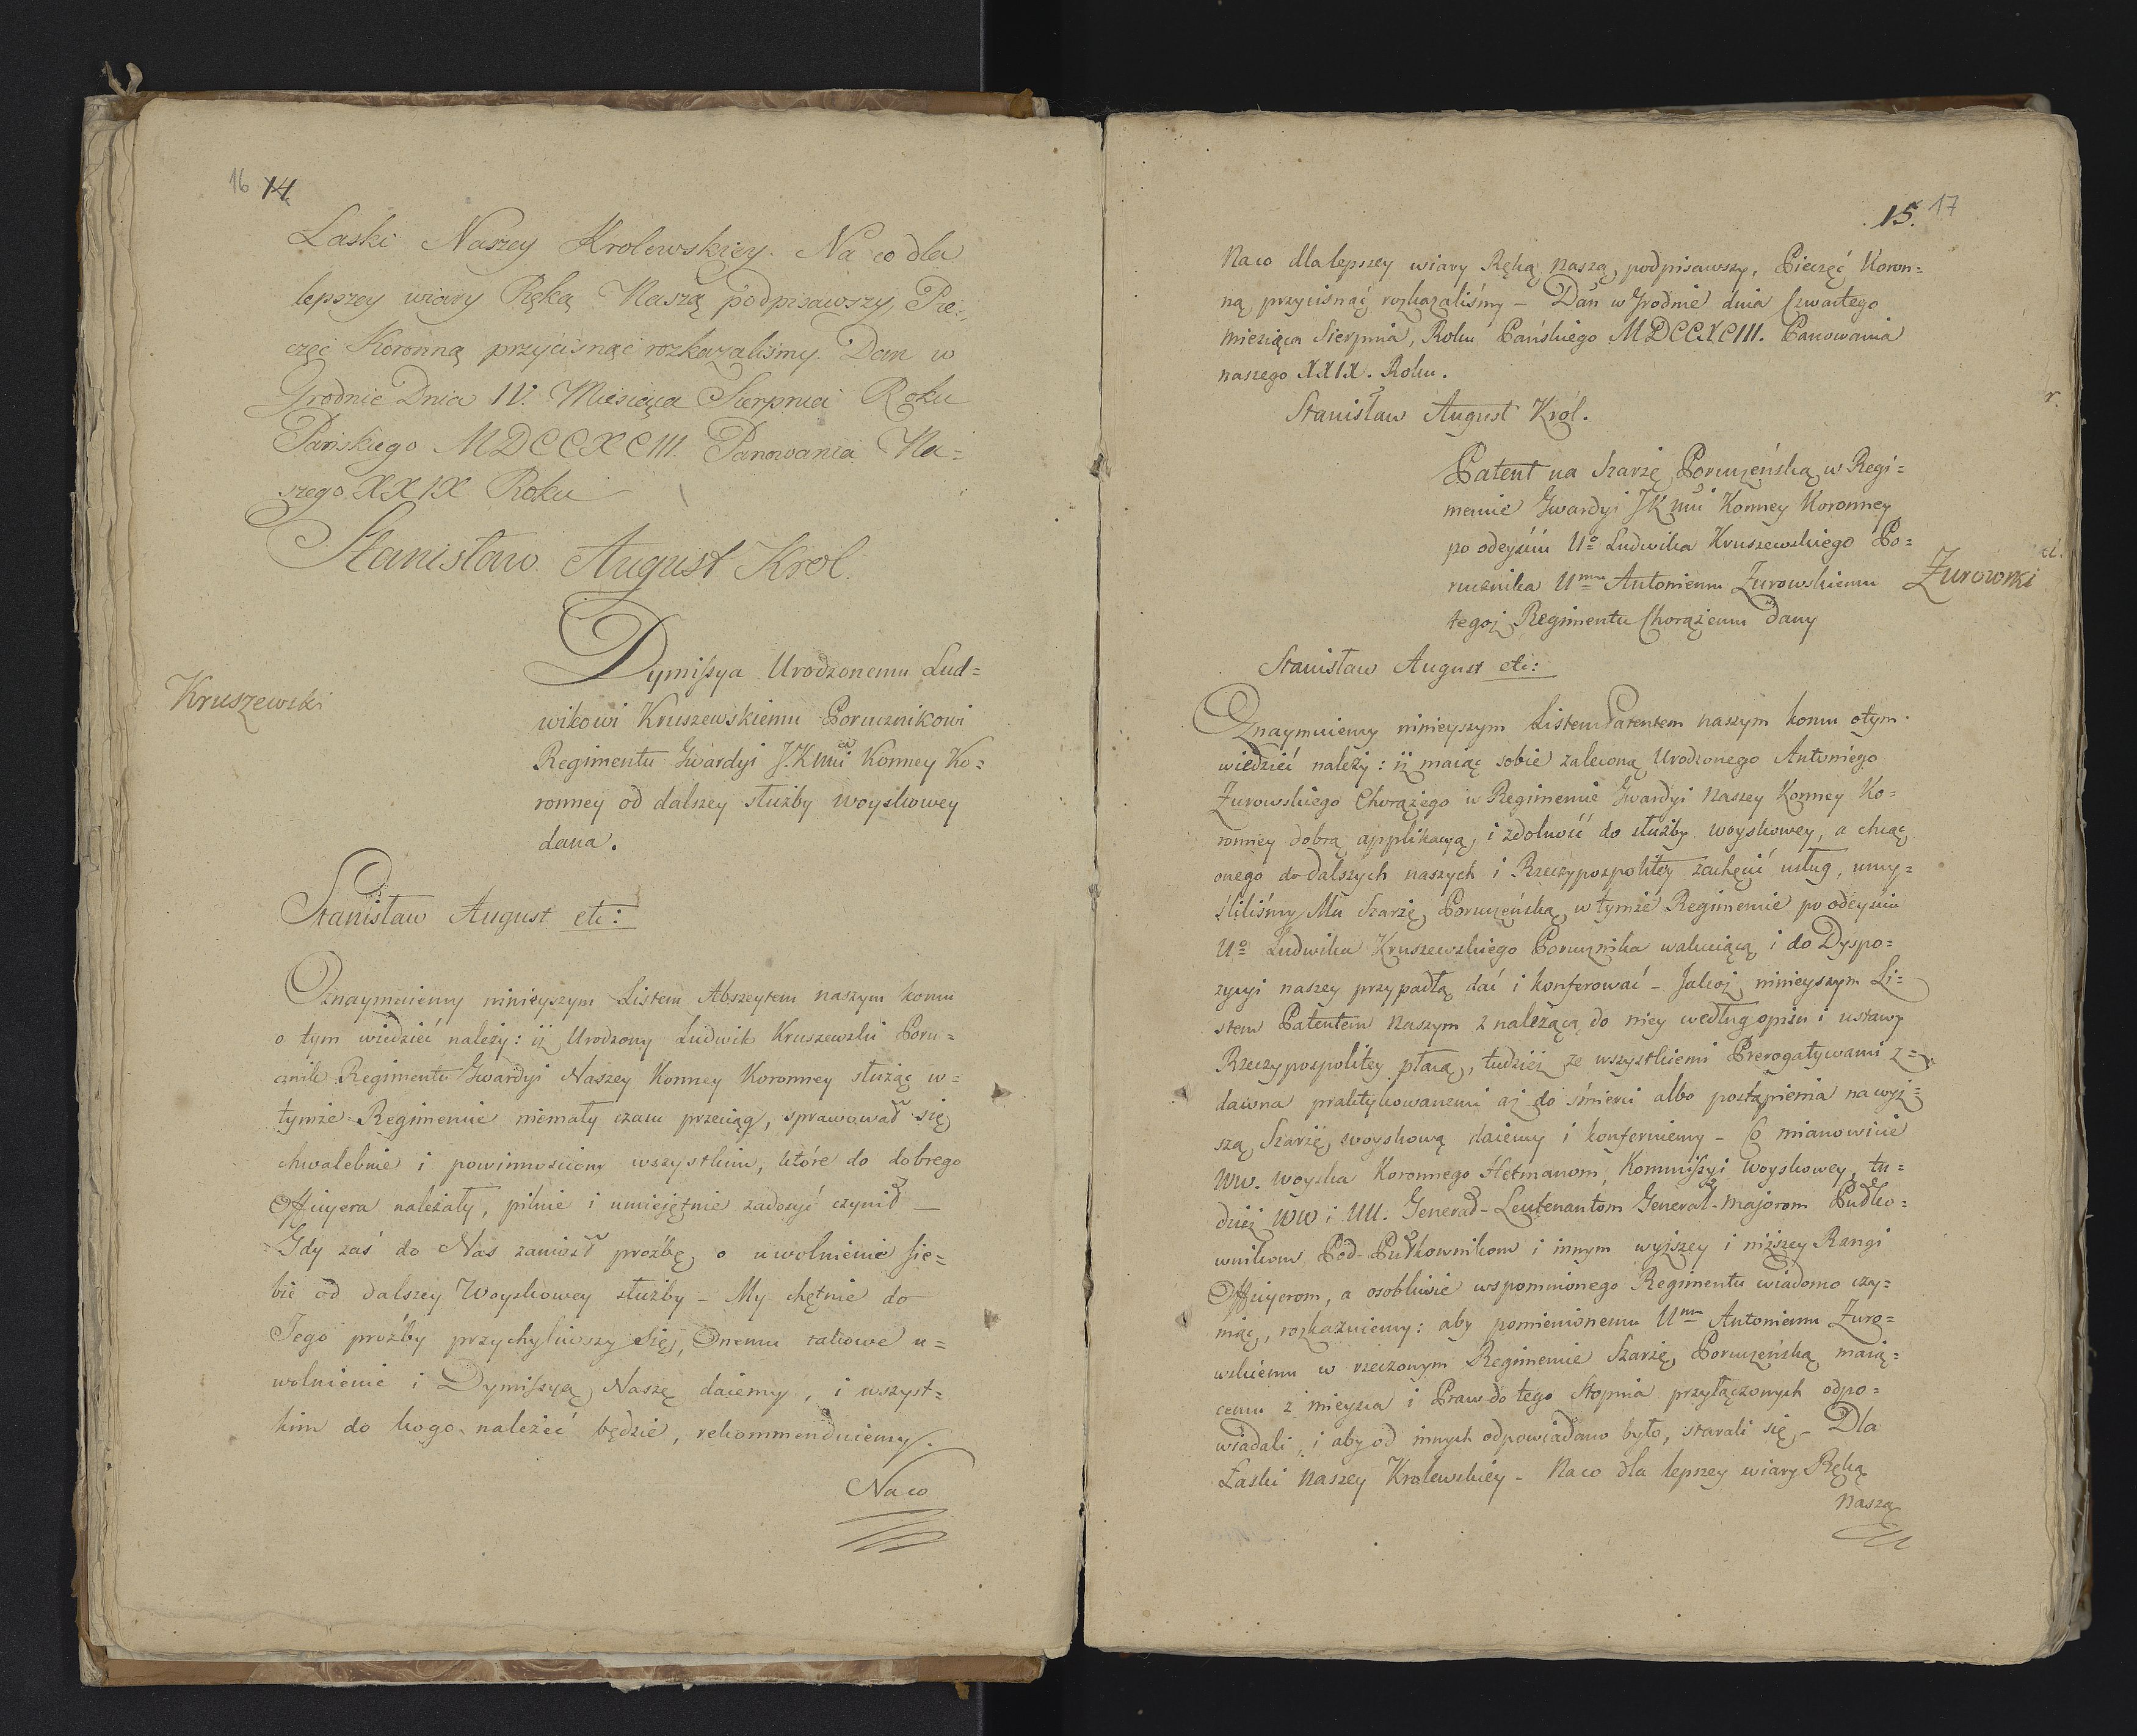 16 14.
Laski Naszey Krolewskiey. Na co dla
lepszey wiary Ręką Naszą podpisawszy, Pie=
częć Koronną przycisnąć rozkazalismy. Dan w
Grodnie Dnia IV. Miesiąca Sierpnia Roku
Pańskiego MDCCXCIII. Panowania Na=
szego XXIX Roku
Stanisław August Krol.
Dymissya Urodzonemu Lud=
Kruszewski
wikowi Kruszewskiemu Porucznikowi
Regimentu Gwardyi J.K.mci Konney Ko=
ronney od dalszey służby woyskowey
dana.
Stanisław August etc:
Oznaymuiemy ninieyszym Listem Abszeytem naszym komu
o tym wiedzieć należy: iż Urodzony Ludwik Kruszewski Poru=
cznik Regimentu Gwardyi Naszey Konney Koronney służąc w=
tymże Regimencie niemały czasu przeciąg, sprawował się
chwalebnie i powinnosciom wszystkim, które do dobrego
Officyera należały, pilnie i umiejętnie zadosyć czynił —
Gdy zaś do Nas zaniosł proźbę o uwolnienie sie=
bie od dalszey Woyskowey służby – My chętnie do
Jego proźby przychyliwszy się, Onemu takowe u=
wolnienie i Dymissyą Naszę daiemy, i wszyst=
kim do kogo należeć będzie, rekommenduiemy.
Na co
15. 17
Na co dla lepszey wiary Ręką naszą podpisawszy, Pieczęć Koron=
ną przycisnąć rozkazaliśmy – Dan w Grodnie dnia Czwartego
miesiąca Sierpnia, Roku Pańskiego MDCCXCIII. Panowania
naszego XXIX. Roku.
Stanisław August Król.
Patent na Szarżę Poruczeńską w Regi=
mencie Gwardyi JK mci Konney Koronney
po odeyściu Uo Ludwika Kruszewskiego Po=
rucznika Umu Antoniemu Żurowskiemu
Żurowski
tegoż Regimentu Chorążemu dany
Stanisław August etc:
Oznaymuiemy ninieyszym Listem Patentem naszym komu o tym
wiedzieć należy: iż maiąc sobie zaleconą Urodzonego Antoniego
Żurowskiego Chorążego w Regimencie Gwardyi Naszey Konney Ko=
ronney dobrą applikacyą, i zdolność do służby woyskowey, a chcąc
onego do dalszych naszych i Rzeczypospolitey zachęcić usług, umy=
śliliśmy Mu Szarżę Poruczeńską w tymże Regimencie po odeyściu
Uo Ludwika Kruszewskiego Porucznika wakuiącą i do Dyspo=
zycyi naszey przypadłą dać i konferować – Jakoż ninieyszym Li=
stem Patentem Naszym z należącą do niey według opisu i ustawy
Rzeczypospolitey płacą, tudzież ze wszystkiemi Prerogatywami z=
dawna praktykowanemi aż do śmierci albo postąpienia na wyż=
szą Szarżę woyskową daiemy i konferuiemy – Co mianowicie
WW. woyska Koronnego Hetmanom, Kommissyi Woyskowey, tu=
dzież WW i UU. Generał-Leutenantom Generał-Majorom Pułko=
wnikom Pod-Pułkownikom i innym wyższey i niższey Rangi
Officyerom, a osobliwie wspomnionego Regimentu wiadomo czy=
niąc, rozkazuiemy: aby pomienionemu Umu Antoniemu Żuro=
wskiemu w rzeczonym Regimencie Szarżę Poruczeńską maią=
cemu z mieysca i Praw do tego Stopnia przyłączonych odpo=
wiadali, i aby od innych odpowiadano było, starali się – Dla
Łaski Naszey Krolewskiey – Na co dla lepszey wiary Ręką
Naszą